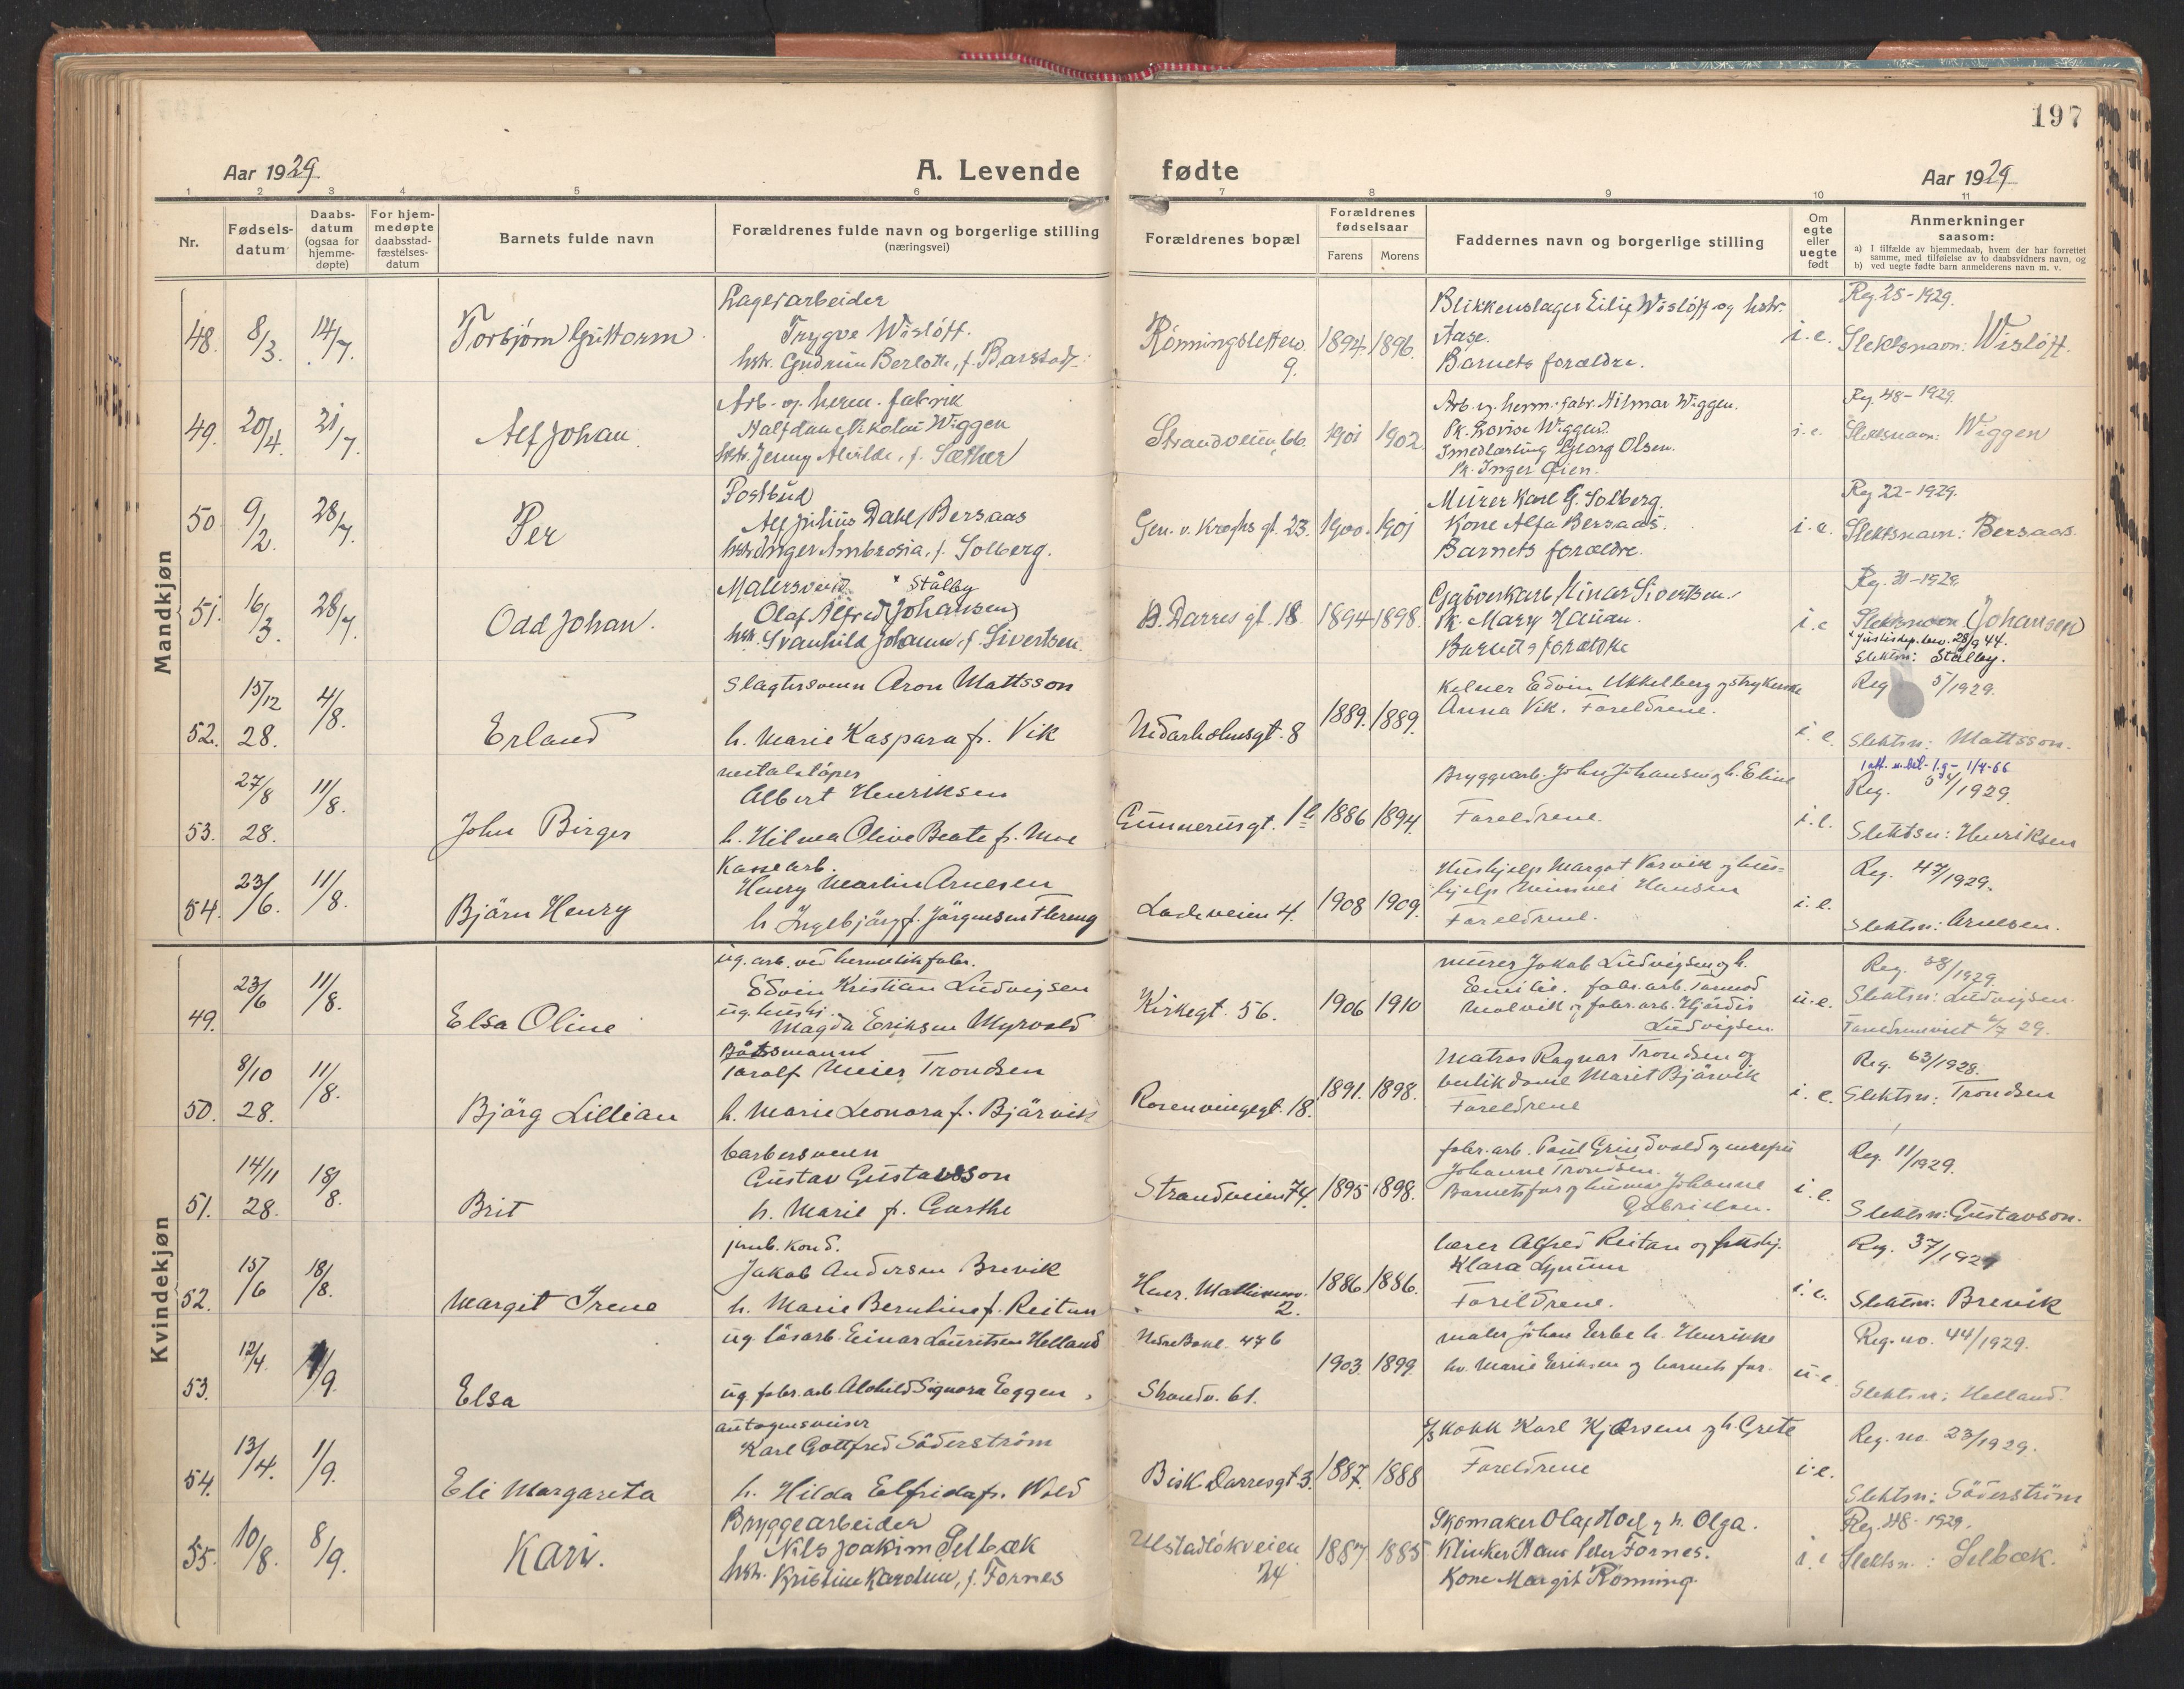 197
Aar 1929.
A. Levende fødte
Aar 1929
1 2 3 4 5 6 7 8 9 10 11
Nr.
Fødsels-
datum
Daabs-
datum
(ogsaa for
hjemme-
døpte)
For hjem-
medøpte
daabsstad-
fæstelses-
datum
Barnets fulde navn
Forældrenes fulde navn og borgerlige stilling
(næringsvei)
Forældrenes bopæl
Forældrenes
fødselsaar
Farens Morens
Faddernes navn og borgerlige stilling
Om
egte
eller
uegte
født
Anmerkninger
saasom:
a) I tilfælde av hjemmedaab, hvem der har forrettet
samme, med tilføielse av to daabsvidners navn, og
b) ved uegte fødte barn anmelderens navn m. v.
Mandkjøn
48. 8/3. 14/7. Torbjørn Guttorm
Lagerarbeider
Trygve Wisløff.
hstr. Gudrun Berlotte, f. Barstad
Rønningsletten
9.
1894 1896.
Blikkenslager Eilif Wisløff og hstr.
Aase.
Barnets forældre.
i.e.
Reg 25-1929.
Slektsnavn: Wisløff.
49. 20/4. 21/7. Alf Johan
Arb. og herm. fabrik
Halfdan Nikolai Wiggen
hstr. Jenny Alvilde, f. Sæther
Strandveien 66. 1901 1902.
Arb. og herm. fabr. Hilmar Wiggen.
Pk. Lovise Wiggen.
Smedlærling Georg Olsen.
Pk. Inger Øien.
i.e.
Reg. 48-1929.
Slektsnavn: Wiggen
50 9/2. 28/7. Per
Postbud
Alf Julius Dahl Bersaas
hstr. Inger Ambrosia, f. Solberg.
Gen. v. Kroghs gt. 23. 1900. 1901
Murer Karl G. Solberg.
Kone Alfa Bersaas.
Barnets forældre.
i.e.
Reg 22-1929.
Slektsnavn: Bersaas.
51. 16/3. 28/7. Odd Johan.
Malersvend x Stålby
Olaf Alfred (Johansen)
hstr. Svanhild Johanne, f. Sivertsen.
B. Darres gt. 18. 1894 1898.
Gasverkarb. Einar Sivertsen.
Pk. Mary
Barnets forældre
i.e
Reg. 31-1929.
Slektsnavn (Johansen)
x Justisdep. bev. 28/9 44.
Slektsn: Stålby.
52. 15/12 28. 4/8. Erland
Slagtersvenn Aron Mattsson
h. Marie Kaspara f. Vik
Nidarholmsgt. 8 1889. 1889.
Kelner Edvin Ukkelberg og strykerske
Anna Vik. Foreldrene.
i.e.
Reg 5/1929.
Slektsn: Mattsson.
53. 27/8 28. 11/8. John Birger
metalstøper
Albert Henriksen
h. Hilma Olive Beate f. Moe
Gunnerusgt. 1b 1886 1894.
Bryggearb. John Johansen og h. Eline
Foreldrene.
i.e.
1 att. u. bil. 1.g - 1/4-66
Reg. /1929.
Slektsn: Henriksen
54. 23/6. 11/8. Bjørn Henry
Kassearb.
Henry Martin Arnesen
h Ingebjørg f. Jørgensen Flereng
Ladeveien 4. 1908 1909.
Hushjelp Margot Vasvik og hus-
hjelp Hansen
Foreldrene.
i.e.
Reg. 47/1929.
Slektsn: Arnesen.
Kvindekjøn
49. 23/6 11/8. Elsa Oline
ug. arb. ved hermetikfabr.
Edvin Kristian Ludvigsen
ug. hushj.
Magda Eriksen Myrvold
Kirkegt. 56. 1906 1910
murer Jakob Ludvigsen og h.
Emilie. fabr. arb. Tormod
Malvik og fabr. arb. Hjørdis
Ludvigsen
u.e.
Reg. 58/1929.
Slektsn: Ludvigsen.
Foreldreneviet 6/7 29.
50. 8/10 28. 11/8. Bjørg Lillian
Båtsmann
Toralf Meier Trondsen
h. Marie Leonora f. Bjørvik
Rosenvingegt. 18. 1891. 1898.
Matros Ragnar Trondsen og
butikdame Marit Bjørvik
Foreldrene
i.e.
Reg. 63/1928.
Slektsn: Trondsen
51. 14/11 28. 18/8. Brit
barbersvenn
Gustav Gustavsson
h. Marie f. Garthe
Strandveien 74. 1895 1898.
fabr. arb. Paul Grindvold og
Johanne Trondsen.
Barnets far og Johanne
Gabrielsen.
i.e.
Reg. 11/1929.
Slektsn: Gustavson.
52. 15/6 18/8. Margit Irene
jernb. kond.
Jakob Andersen Brevik
h. Marie Berntine f. Reitan
Henr. Mathisensv.
2.
1886 1886.
lærer Alfred Reitan og hushj.
Klara Lynum
Foreldrene.
i.e.
Reg. 37/1929
Slektsn: Brevik
53. 12/4. 1/9. Elsa
ug. løsarb. Einar Lauritsen Helland
ug. fabr. arb. Alvhild Signora Eggen
Nedre Bakl. 47b
Strandv. 61.
1903 1899.
maler Johan Erbe h. Henrikke
hv. Marie Eriksen og barnets far.
u.e.
Reg. no. 44/1929.
Slektsn: Helland.
54. 13/4. 1/9. Eli Margareta
autogensveiser
Karl Gottfred Söderström
h. Hilda Elfrida f. Wold
Bisk. Darresgt 3. 1887. 1888
kokk Karl Kjørsem og h. Grete
Foreldrene
i.e.
Reg. no. 23/1929.
Slektsn: Söderström
55. 10/8. 8/9. Kari.
Bryggearbeider
Nils Joakim Selbæk
hstr. Kristine Karoline, f. Fornes
Ulstadløkveien
24
1887 1885
Skomaker Olaf Hoel og h. Olga.
Klinker Hans Peter Fornes.
Kone Margit Rønning.
i.e
Reg. 48-1929.
Slektsn.: Selbæk.